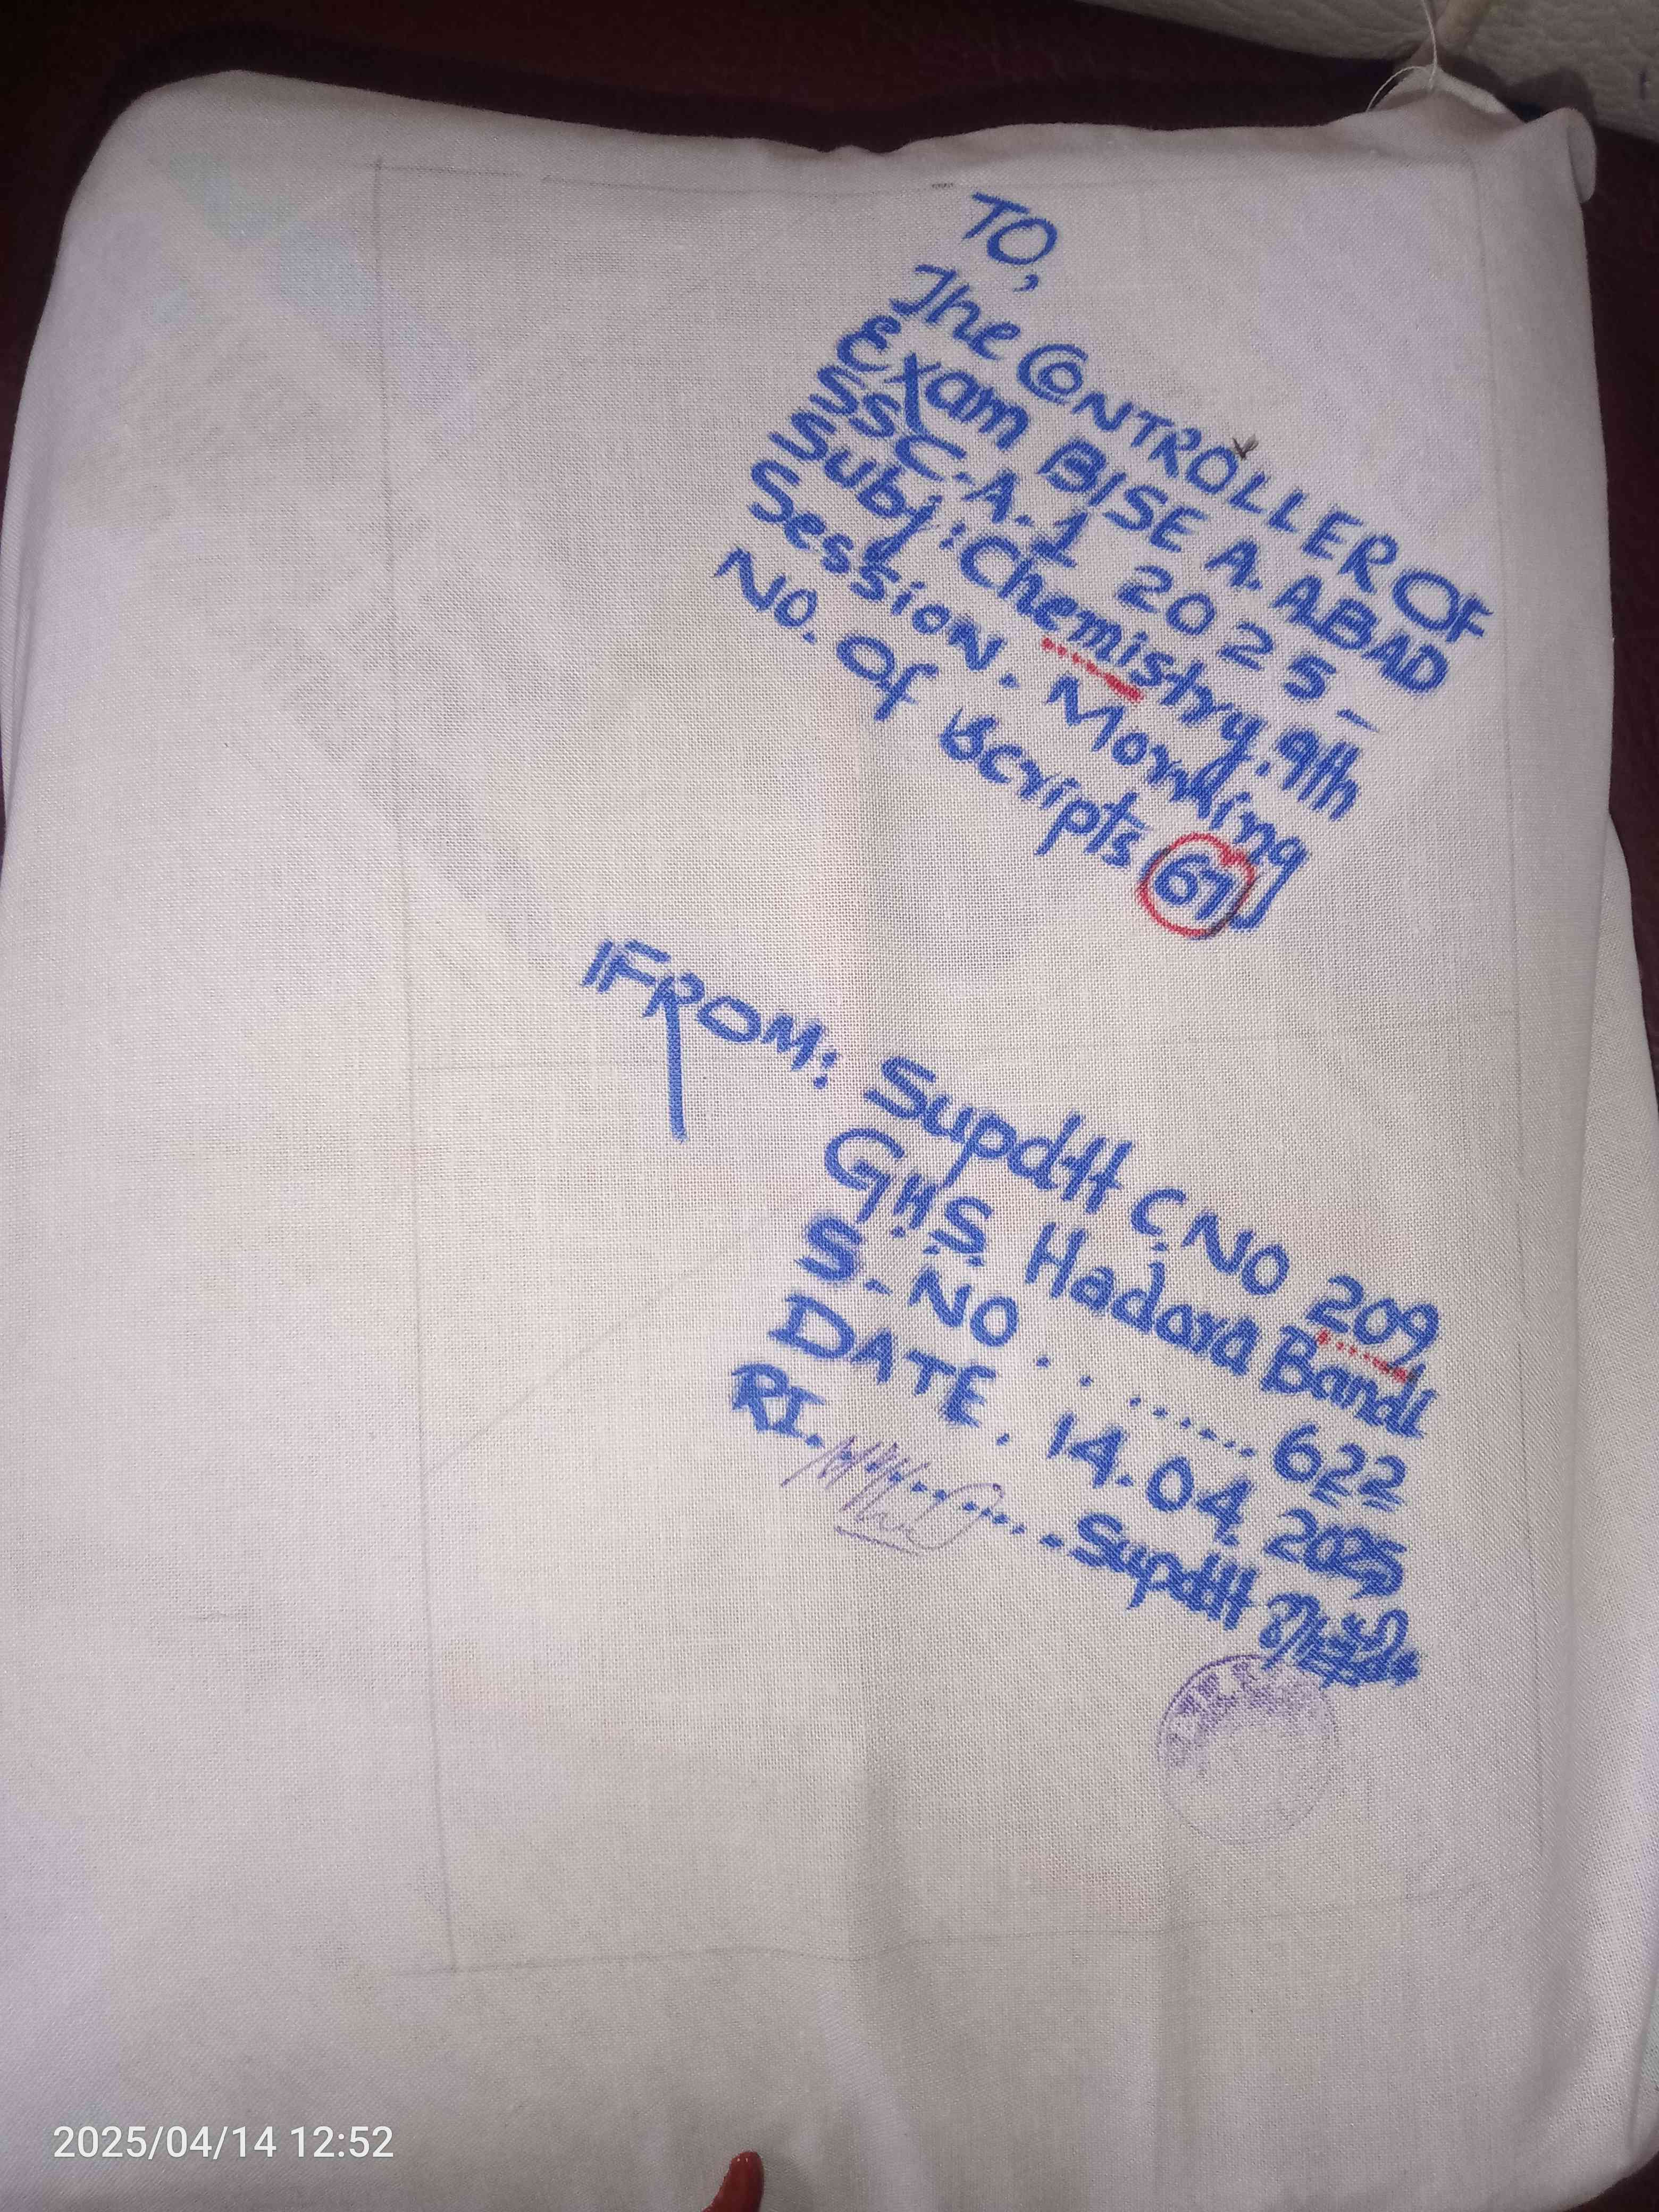 TO,
The CONTROLLER OF
Exam BISE A.ABAD
SSC.A.1 2025-
Subj: Chemistry.9th
Session. Morning
NO. Of Scripts (67)
FROM: Supdtt C.NO 209
G.H.S. Hadora Bandi
S-NO......... 622
DATE. 14.04.2025
RI.......... Supdtt
2025/04/14 12:52